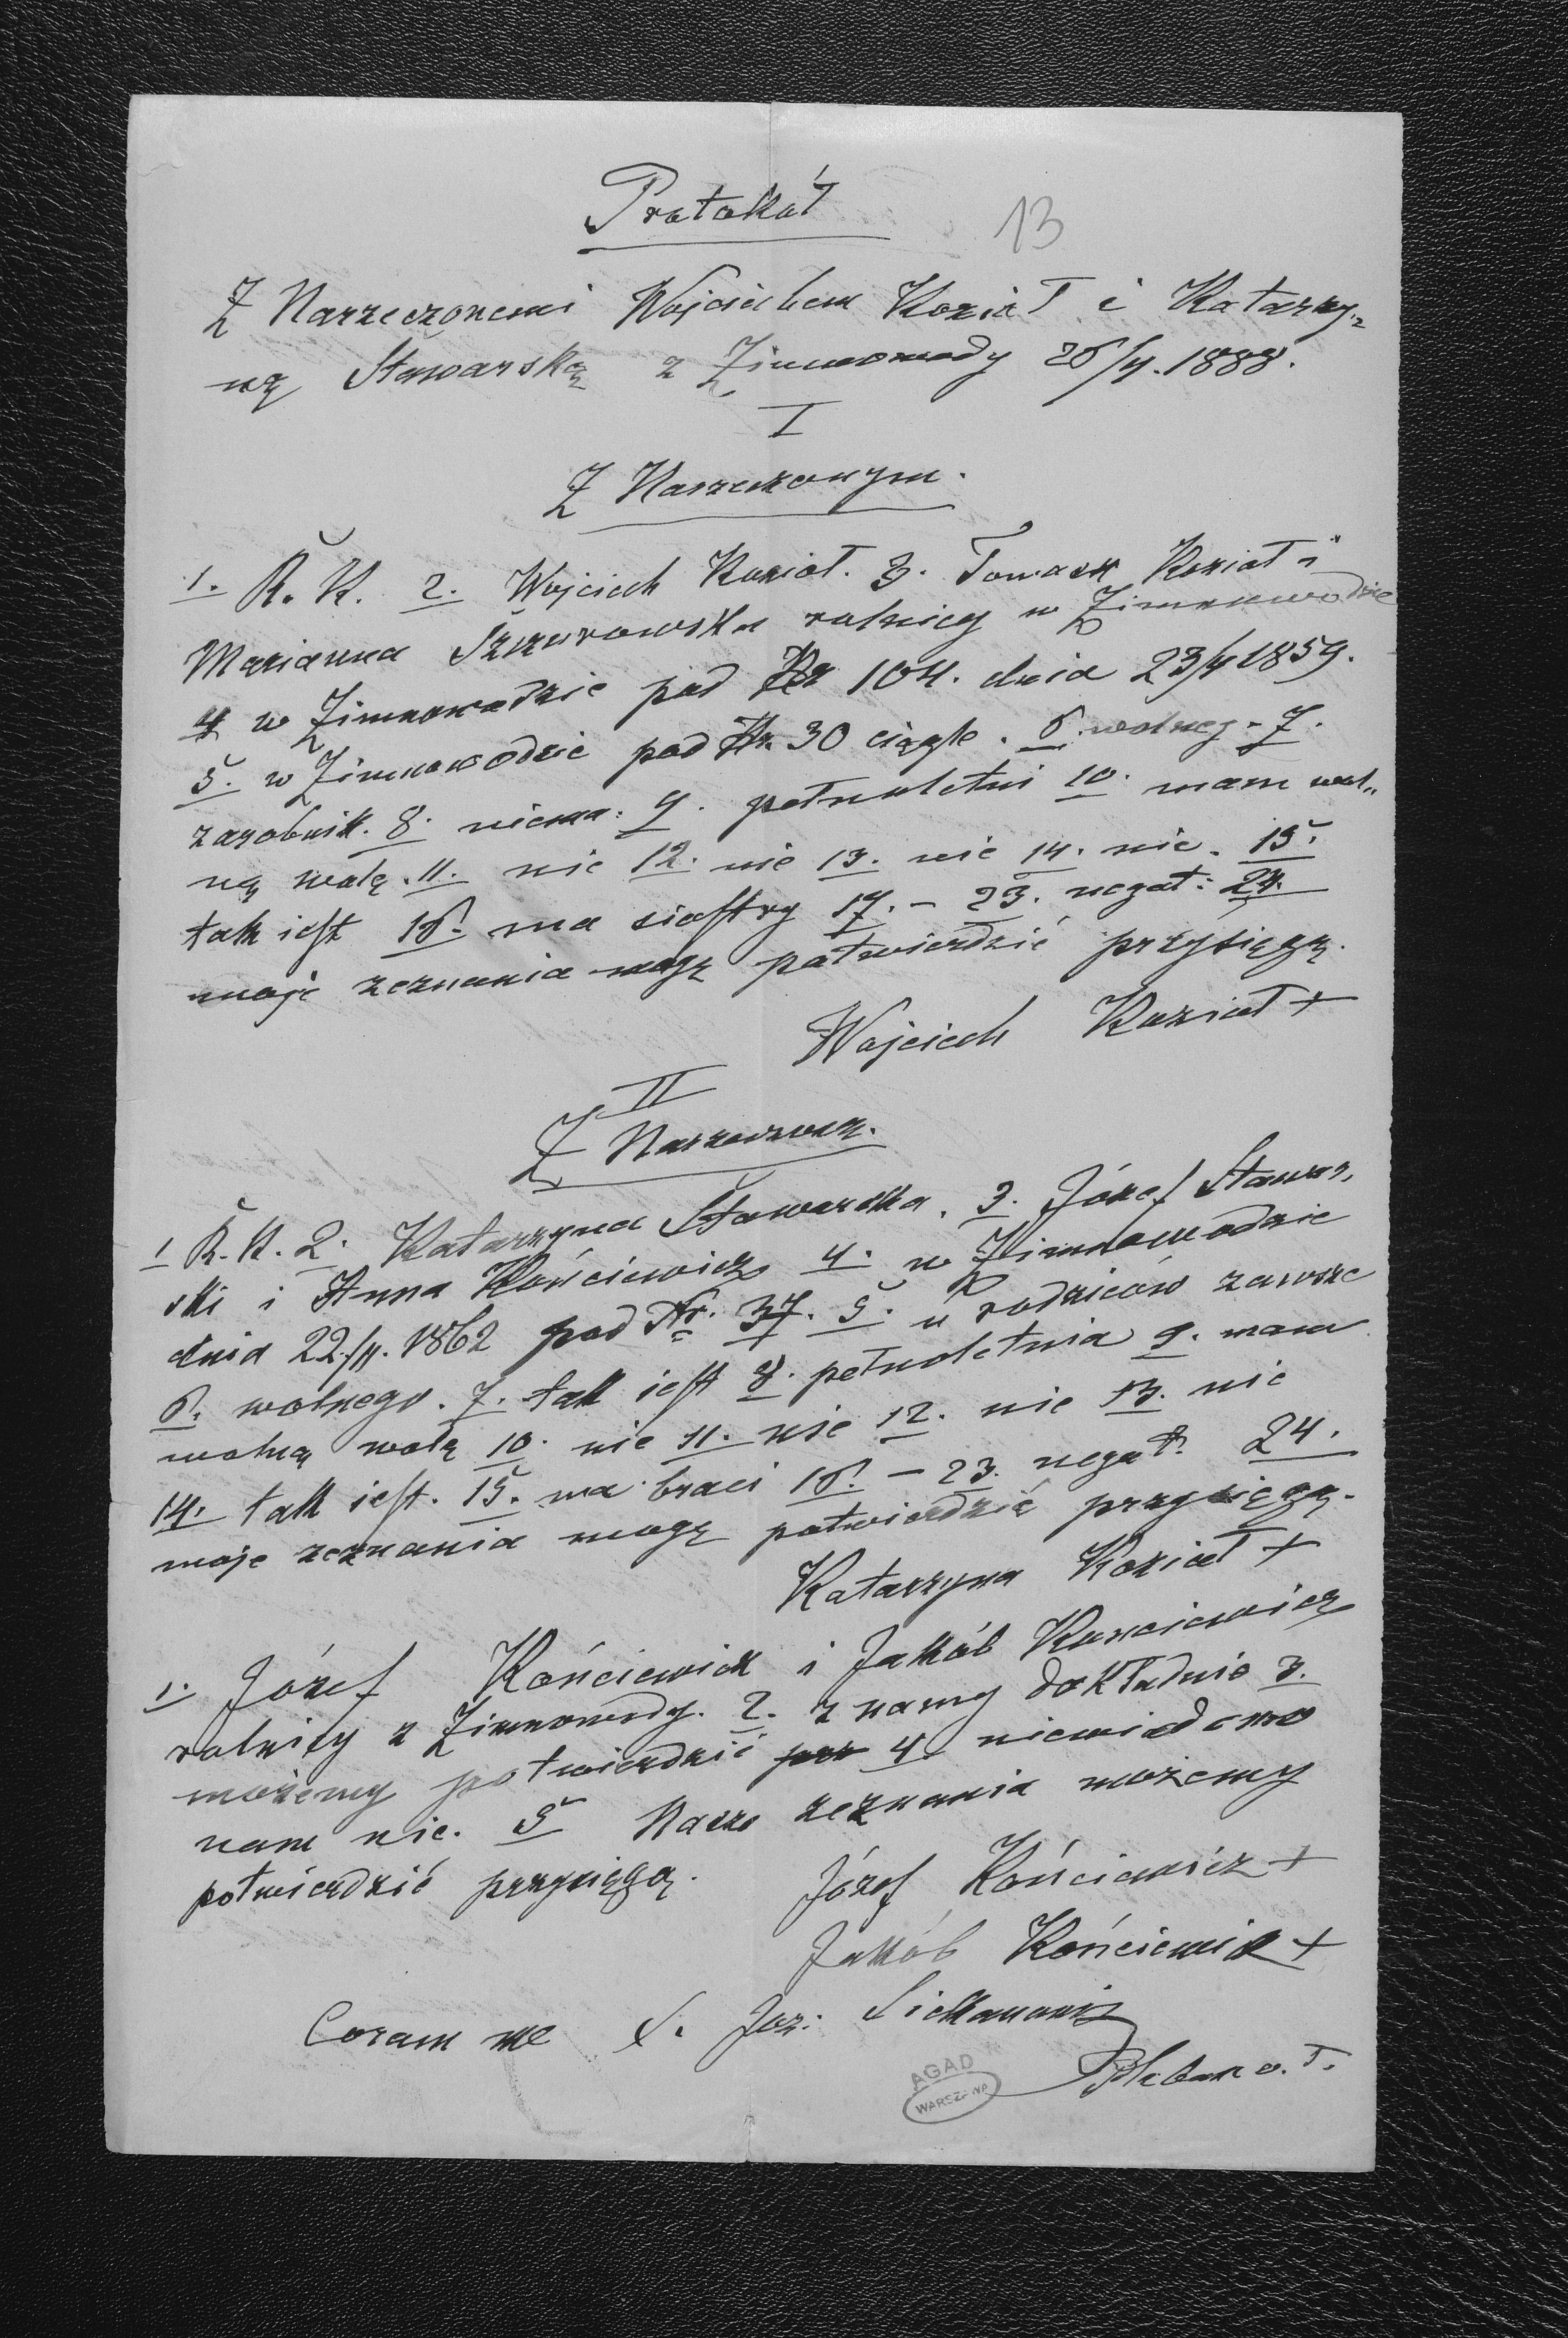 Protokół
13
Z Narzeczonemi Wojciechem Kozioł i Katarzy-
ną Stawarską z Zimnowody 26/4. 1888.
I
Z Narzeczonym.
1. R. K. 2. Wojciech Kozioł. 3. Tomasz Kozioł i
Marianna Szczurowska rolnicy w Zimnowodzie
4 w Zimnowodzie pod Nr 104. dnia 23/4 1859.
5. w Zimnowodzie pod Nr. 30 ciągle. 6. wolnej - 7.
zarobnik. 8. niema. 9. pełnoletni 10. mam wol-
ną wolę. 11. nie 12. nie 13. nie 14. nie. 15.
tak jest 16. ma siostry 17. - 23. negat: 24.
moje zeznania mogę potwierdzić przysięgą.
Wojciech Kozioł +
II
Z Narzeczoną.
1 R. K. 2. Katarzyna Stawarska. 3. Józef Stawar-
ski i Anna Końciewicz 4. w Zimnowodzie
dnia 22./11. 1862 pod Nr. 37. 5. u rodziców zawsze
6. wolnego. 7. tak jest 8. pełnoletnia 9. mam
wolną wolę 10. nie 11. nie 12. nie 13. nie
14. tak jest. 15. ma braci 16. - 23. negat. 24.
moje zeznania mogę potwierdzić przysięgą.
Katarzyna Kozioł +
1. Józef Końciewicz i Jakób Konciewicz
rolnicy z Zimnowody. 2. znamy dokładnie 3.
możemy potwierdzić prz 4. niewiadomo
nam nic. 5 Nasze zeznania możemy
potwierdzić przysięgą.
Józef Końciewicz +
Jakób Końciewicz +
Coram me X. Joz:
Pleban o. ł.
AGAD
WARSZAWA